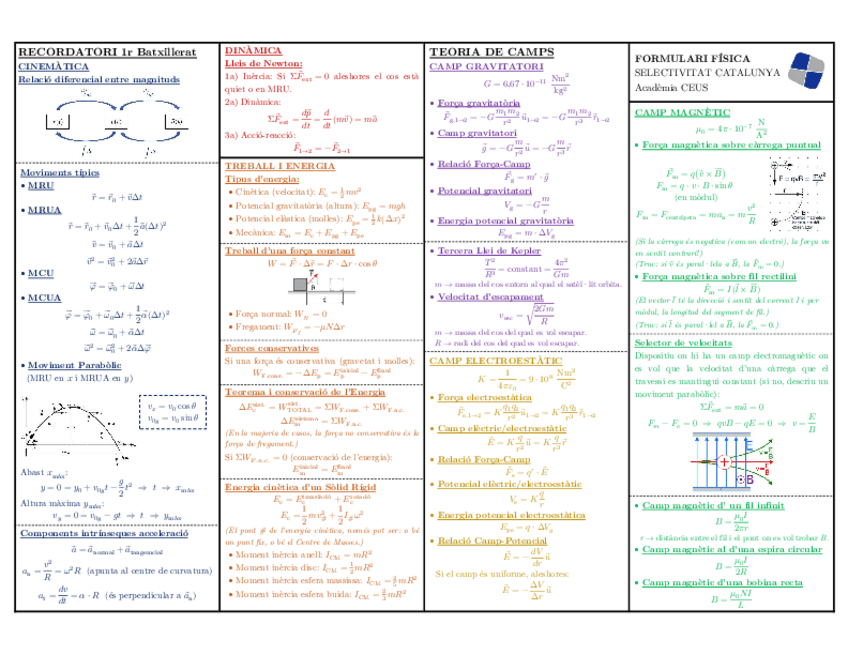 RECORDATORI 1r Batxillerat
CINEMÀTICA
Relació diferencial entre magnituds
Moviments típics
• MRU
r⃗ = r⃗₀ + v⃗Δt
• MRUA
r⃗ = r⃗₀ + v⃗₀Δt + 1/2 a⃗(Δt)²
v⃗ = v⃗₀ + a⃗Δt
v⃗² = v⃗₀² + 2a⃗Δr⃗
• MCU
φ⃗ = φ⃗₀ + ω⃗Δt
• MCUA
φ⃗ = φ⃗₀ + ω⃗₀Δt + 1/2 α⃗(Δt)²
ω⃗ = ω⃗₀ + α⃗Δt
ω⃗² = ω⃗₀² + 2α⃗Δφ⃗
• Moviment Parabòlic
(MRU en x i MRUA en y)
vₓ = v₀ cos θ
v₀y = v₀ sin θ
Abast xmàx:
y = 0 = y₀ + v₀y t − g/2 t² ⇒ t ⇒ xmàx
Altura màxima ymàx:
vy = 0 = v₀y − gt ⇒ t ⇒ ymàx
Components intrínseques acceleració
a⃗ = a⃗normal + a⃗tangencial
aₙ = v²/R = ω²R (apunta al centre de curvatura)
aₜ = dv/dt = α · R (és perpendicular a a⃗ₙ)
DINÀMICA
Lleis de Newton:
1a) Inèrcia: Si ΣF⃗ext = 0 aleshores el cos està
quiet o en MRU.
2a) Dinàmica:
ΣF⃗ext = dp⃗/dt = d/dt (mv⃗) = ma⃗
3a) Acció-reacció:
F⃗1→2 = −F⃗2→1
TREBALL I ENERGIA
Tipus d'energia:
• Cinètica (velocitat): Ec = 1/2 mv²
• Potencial gravitatòria (altura): Epg = mgh
• Potencial elàstica (molles): Epe = 1/2 k(Δx)²
• Mecànica: Em = Ec + Epg + Epe
Treball d'una força constant
W = F⃗ · Δr⃗ = F · Δr · cos θ
• Força normal: WN = 0
• Fregament: WFf = −μNΔr
Forces conservatives
Si una força és conservativa (gravetat i molles):
WF.cons. = −ΔEp = Epinicial − Epfinal
Teorema i conservació de l'Energia
(En la majoria de casos, la força no conservativa és la
força de fregament.)
Si ΣWF.n.c. = 0 (conservació de l'energia):
Eminicial = Emfinal
Energia cinètica d'un Sòlid Rígid
Ec = Ectranslació + Ecrotació
(El punt # de l'energia cinètica, només pot ser: o bé
un punt fix, o bé el Centre de Masses.)
• Moment inèrcia anell: ICM = mR²
• Moment inèrcia disc: ICM = 1/2 mR²
• Moment inèrcia esfera massissa: ICM = 2/5 mR²
• Moment inèrcia esfera buida: ICM = 2/3 mR²
TEORIA DE CAMPS
CAMP GRAVITATORI
G = 6,67 · 10⁻¹¹ Nm²/kg²
• Força gravitatòria
• Camp gravitatori
g⃗ = −G m/r² u⃗ = −G m/r³ r⃗
• Relació Força-Camp
F⃗g = m' · g⃗
• Potencial gravitatori
Vg = −G m/r
• Energia potencial gravitatòria
Epg = m · ΔVg
• Tercera Llei de Kepler
T²/R³ = constant = 4π²/Gm
m → massa del cos entorn al qual el satèl·lit orbita.
• Velocitat d'escapament
vesc = √(2Gm/R)
m → massa del cos del qual es vol escapar.
R → radi del cos del qual es vol escapar.
CAMP ELECTROESTÀTIC
K = 1/4πε₀ = 9 · 10⁹ Nm²/C²
• Força electroestàtica
• Camp elèctric/electroestàtic
E⃗ = K q/r² u⃗ = K q/r³ r⃗
• Relació Força-Camp
F⃗e = q' · E⃗
• Potencial elèctric/electroestàtic
Ve = K q/r
• Energia potencial electroestàtica
Epe = q · ΔVe
• Relació Camp-Potencial
E⃗ = − dV/dr u⃗
Si el camp és uniforme, aleshores:
E⃗ = − ΔV/Δr u⃗
FORMULARI FÍSICA
SELECTIVITAT CATALUNYA
Acadèmia CEUS
CAMP MAGNÈTIC
μ₀ = 4π · 10⁻⁷ N/A²
• Força magnètica sobre càrrega puntual
F⃗m = q(v⃗ × B⃗)
Fm = q · v · B · sin θ
(en mòdul)
Fm = Fcentrípeta = maₙ = m v²/R
(Si la càrrega és negativa (com un electró), la força va
en sentit contrari!)
(Truc: si v⃗ és paral·lela a B⃗, la F⃗m = 0.)
• Força magnètica sobre fil rectilini
F⃗m = I(l⃗ × B⃗)
(El vector l⃗ té la direcció i sentit del corrent I i per
mòdul, la longitud del segment de fil.)
(Truc: si l⃗ és paral·lel a B⃗, la F⃗m = 0.)
Selector de velocitats
Dispositiu on hi ha un camp electromagnètic on
es vol que la velocitat d'una càrrega que el
travessi es mantingui constant (si no, descriu un
moviment parabòlic):
ΣF⃗ = ma⃗ = 0
Fm − Fe = 0 ⇒ qvB − qE = 0 ⇒ v = E/B
• Camp magnètic d' un fil infinit
B = μ₀I/2πr
r → distància entre el fil i el punt on es vol trobar B.
• Camp magnètic al d'una espira circular
B = μ₀I/2R
• Camp magnètic d'una bobina recta
B = μ₀NI/L